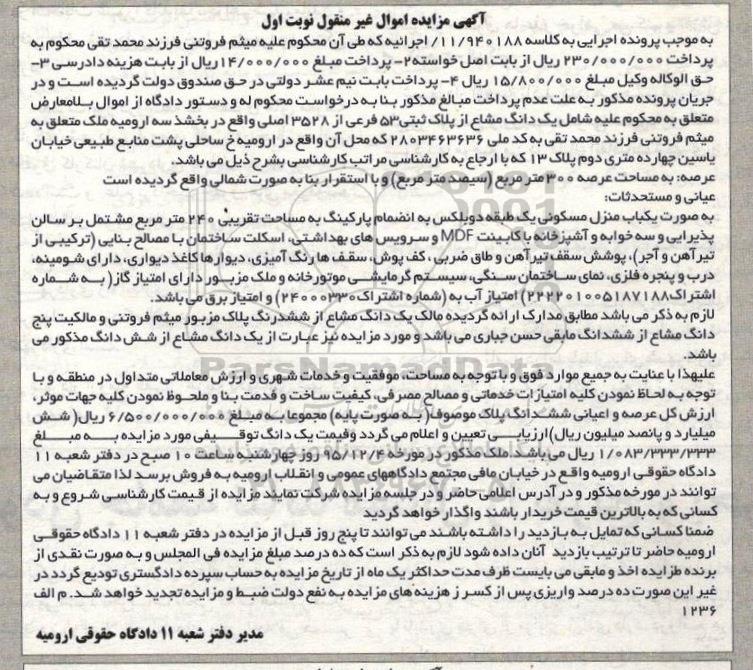 آگهی مزایده اموال غیر منقول نوبت اول
به موجب پرونده اجرایی به کلاسه ۱۱/۹۴۰۱۸۸/ اجرائیه که طی آن محکوم علیه میثم فروتنی فرزند محمد تقی محکوم به
پرداخت ۲۳۰/۰۰۰/۰۰۰ ریال از بابت اصل خواسته۲- پرداخت مبلغ ۱۴/۰۰۰/۰۰۰ریال از بابت هزینه دادرسی ۳-
حق الوکاله وکیل مبلغ ۱۵/۸۰۰/۰۰۰ ریال ۴- پرداخت بابت نیم عشر دولتی در حق صندوق دولت گردیده است و در
جریان پرونده مذکور به علت عدم پرداخت مبالغ مذکور بنا به درخواست محکوم له و دستور دادگاه از اموال بلامعارض
متعلق به محکوم علیه شامل یک دانگ مشاع از پلاک ثبتی۵۳ فرعی از ۳۵۲۸ اصلی واقع در بخشذ سه ارومیه ملک متعلق به
میثم فروتنی فرزند محمد تقی به کد ملی ۲۸۰۳۴۶۳۶۳۶ که محل آن واقع در ارومیه خ ساحلی پشت منابع طبیعی خیابان
یاسین چهارده متری دوم پلاک ۱۳ که با ارجاع به کارشناسی مراتب کارشناسی بشرح ذیل می باشد.
عرصه: به مساحت عرصه ۳۰۰ متر مربع (سیصد متر مربع) و با استقرار بنا به صورت شمالی واقع گردیده است
عیانی و مستحدثات:
به صورت یکباب منزل مسکونی یک طبقه دوبلکس به انضمام پارکینگ به مساحت تقریبی ۲۴۰ متر مربع مشتمل بر سالن
پذیرایی و سه خوابه و آشپزخانه با کابینت MDF و سرویس های بهداشتی، اسکلت ساختمان با مصالح بنایی (ترکیبی از
تیرآهن و آجر)، پوشش سقف تیرآهن و طاق ضربی ، کف پوش، سقف ها رنگ آمیزی، دیوارها کاغذ دیواری، دارای شومینه،
درب و پنجره فلزی، نمای ساختمان سنگی، سیستم گرمایشی موتورخانه و ملک مزبور دارای امتیاز گاز( به شماره
اشتراک۲۲۲۲۰۱۰۰۵۱۸۷۱۸۸) امتیاز آب به (شماره اشتراک۲۴۰۰۰۳۳۰) و امتیاز برق می باشد.
لازم به ذکر می باشد مطابق مدارک ارائه گردیده مالک یک دانگ مشاع از ششدرنگ پلاک مزبور میثم فروتنی و مالکیت پنج
دانگ مشاع از ششدانگ مابقی حسن جباری می باشد و مورد مزایده نیز عبارت از یک دانگ مشاع از شش دانگ مذکور می
باشد.
علیهذا با عنایت به جمیع موارد فوق و با توجه به مساحت، موقعیت و خدمات شهری و ارزش معاملاتی متداول در منطقه و با
توجه به لحاظ نمودن کلیه امتیازات خدماتی و مصالح مصرفی، کیفیت ساخت و قدمت بنا و ملحوظ نمودن کلیه جهات موثر،
ارزش کل عرصه و اعیانی ششدانگ پلاک موصوف( به صورت پایه) مجموعا به مبلغ ۶/۵۰۰/۰۰۰/۰۰۰ ریال( شش
میلیارد و پانصد میلیون ریال)ارزیابی تعیین و اعلام می گردد وقیمت یک دانگ توقیفی مورد مزایده به مبلغ
۱/۰۸۳/۳۳۳/۳۳۳ ریال می باشد. ملک مذکور در مورخه ۹۵/۱۲/۴ روز چهارشنبه ساعت ۱۰ صبح در دفتر شعبه ۱۱
دادگاه حقوقی ارومیه واقع در خیابان مافی مجتمع دادگاههای عمومی و انقلاب ارومیه به فروش برسد لذا متقاضیان می
توانند در مورخه مذکور و در آدرس اعلامی حاضر و در جلسه مزایده شرکت نمایند مزایده از قیمت کارشناسی شروع و به
کسانی که به بالاترین قیمت خریدار باشند واگذار خواهد گردید
ضمنا کسانی که تمایل به بازدید را داشته باشند می توانند تا پنج روز قبل از مزایده در دفتر شعبه ۱۱ دادگاه حقوقی
ارومیه حاضر تا ترتیب بازدید آنان داده شود لازم به ذکر است که ده درصد مبلغ مزایده فی المجلس و به صورت نقدی از
برنده طزایده اخذ و مابقی می بایست ظرف مدت حداکثر یک ماه از تاریخ مزایده به حساب سپرده دادگستری تودیع گردد در
غیر این صورت ده درصد واریزی پس از کسر ز هزینه های مزایده به نفع دولت ضبط و مزایده تجدید خواهد شد. م الف
۱۲۳۶
مدیر دفتر شعبه ۱۱ دادگاه حقوقی ارومیه
ParsNamadData